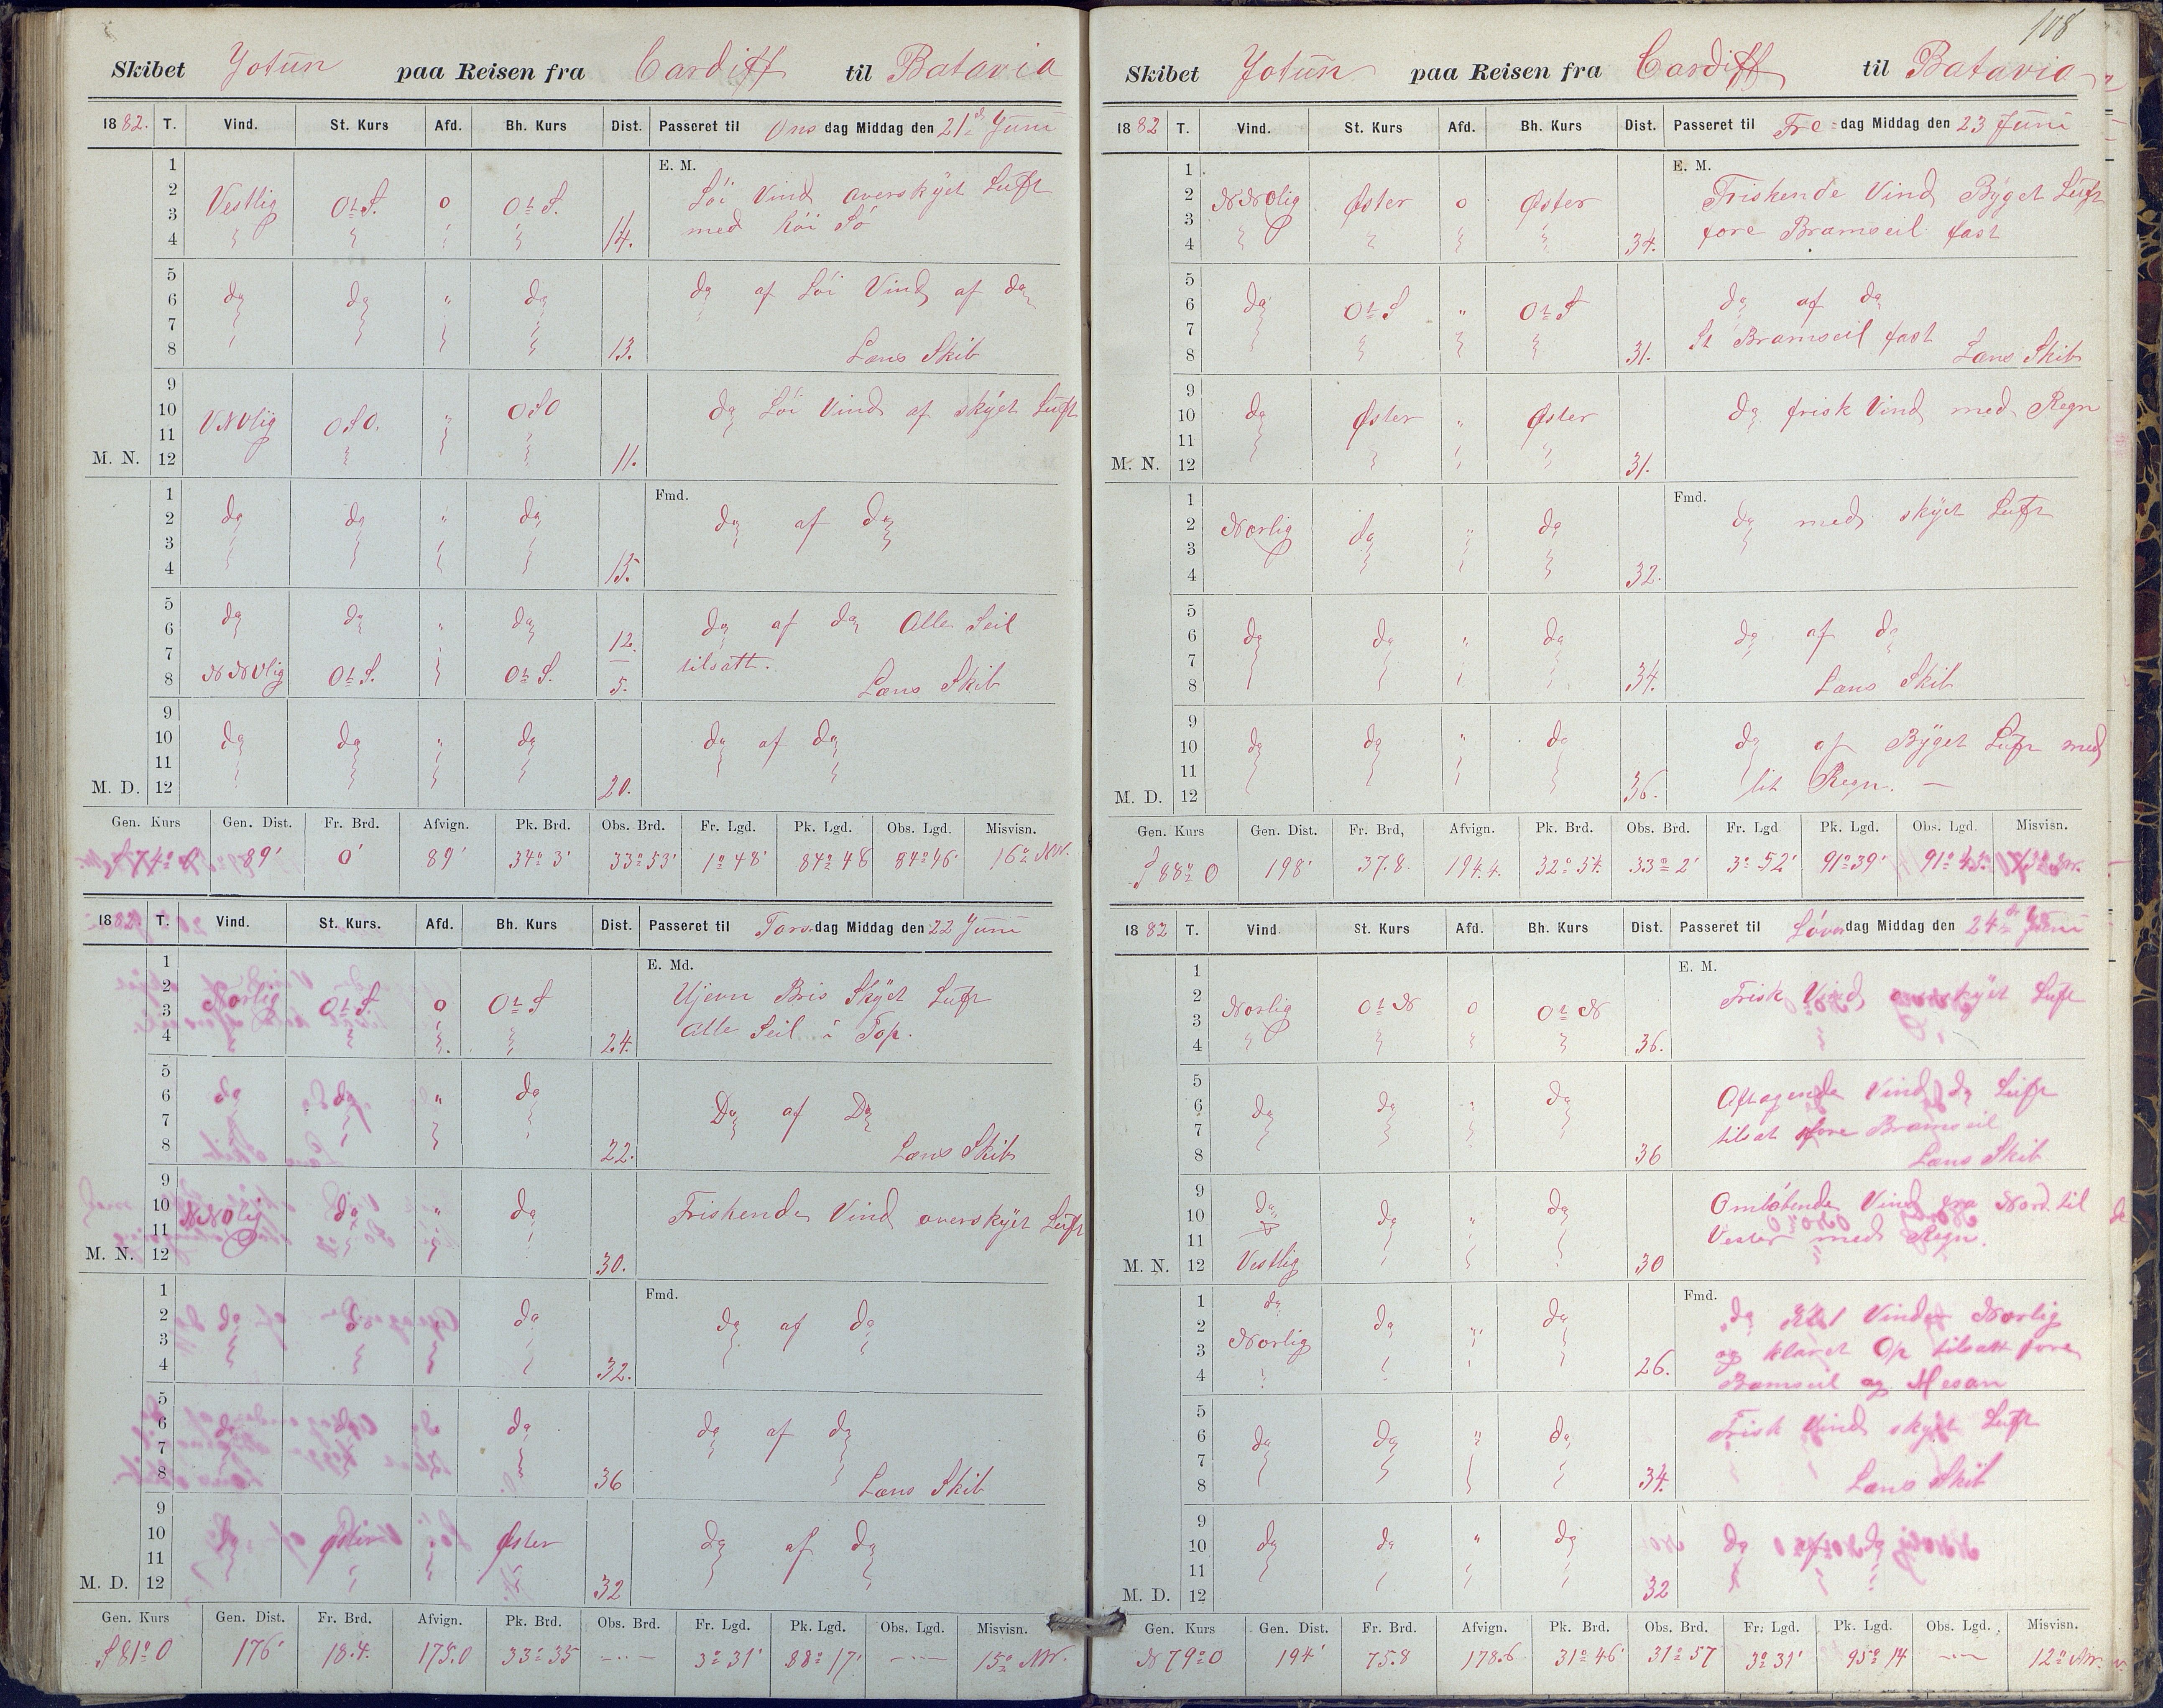 108
Skibet Jotun paa Reisen fra Cardiff til Batavia
1882. T. Vind. St. Kurs Afd. Bh. Kurs Dist. Passeret til Onsdag Middag den 21d Juni
E. M.
1
2 Vestlig OtS. 0 OtS. Löi Vind overskyet Luft
3 med höi Sö
4 14.
5
6 do do " do do af Löi Vind af do
7
8 13. Læns Skib
9
10 VNVlig OSO. " OSO do Löi Vind af skyet Luft
11
M. N. 12 11.
Fmd.
1
2 do do " do do af do
3
4 15.
5
6 do do " do 12. do af do Alle Seil
7 tilsatt.
8 NNVlig OtS. OtS. 5. Læns Skib
9
10 do do " do do af do
11
M. D. 12 20.
Gen. Kurs Gen. Dist. Fr. Brd. Afvign. Pk. Brd. Obs. Brd. Fr. Lgd. Pk. Lgd. Obs. Lgd. Misvisn.
89' 0' 89' 34° 3' 33°53' 1°48' 84°48 84°46' 16° NW.
1882. T. Vind. St. Kurs. Afd. Bh. Kurs Dist. Passeret til Torsdag Middag den 22 Juni
E. Md.
1
2 Norlig OtS. 0 OtS Ujevn Bris Skyet Luft
3 alle Seil i Top.
4 24.
5
6 do do " do Do af Do
7
8 22. Læns Skib
9
10 NNOlig do " do Friskende Vind overskyet Luft
11
M. N. 12 30.
Fmd.
1
2 do do do do af do
3
4 32.
5
6 do do do do af do
7
8 36 Læns Skib
9
10 do Øster Øster do af do
11
M. D. 12 32
Gen. Kurs Gen. Dist. Fr. Brd. Afvign. Pk. Brd. Obs. Brd. Fr. Lgd. Pk. Lgd. Obs. Lgd. Misvisn.
S 81° O 176' 18.4. 175.0 33°35 — 3°31' 88°17' — 15° NW.
Skibet Jotun paa Reisen fra Cardiff til Batavia
1882 T. Vind. St. Kurs Afd. Bh. Kurs Dist. Passeret til Fredag Middag den 23 Juni
E. M.
1
2 NNOlig Øster 0 Øster Friskende Vind Byget Luft
3 fore Bramseil fast
4 34.
5
6 do OtS " OtS do af do
7 St Bramseil fast
8 31. Læns Skib
9
10 do Øster " Øster do frisk Vind med Regn
11
M. N. 12 31.
Fmd.
1
2 Norlig do " do do med skyet Luft
3
4 32.
5
6 do do " do do af do
7
8 34. Læns Skib
9
10 do do " do do af Byget Luft med
11 lit Regn. —
M. D. 12 36.
Gen. Kurs Gen. Dist. Fr. Brd, Afvign. Pk. Brd. Obs. Brd. Fr. Lgd Pk. Lgd. Obs. Lgd. Misvisn.
S 88° O 198' 37.8. 194.4. 32°54. 33° 2' 3°52' 91°39' 91°45' 13° NW.
1882 T. Vind. St. Kurs Afd. Bh. Kurs Dist. Passeret til Löverdag Middag den 24de Juni
E. M.
1
2 Norlig OtN 0 OtN Frisk Vind overskyet Luft
3
4 36.
5
6 do do " do Aftagende Vind do Luft
7 tilsat fore Bramseil
8 36 Læns Skib
9
10 do do " do Omlöbende Vind fra Nord til
11 Vester med Regn.
M. N. 12 Vestlig 30
Fmd.
1 do
2 Norlig do " do do Vinden Norlig
3 og klaret Op tilsatt fore
4 26. Bramseil og Mesan
5
6 do do " do Frisk Vind skyet Luft
7
8 34. Læns Skib
9
10 do do " do do af do
11
M. D. 12 32
Gen. Kurs Gen. Dist. Fr. Brd. Afvign. Pk. Brd. Obs. Brd. Fr. Lgd. Pk. Lgd. Obs. Lgd. Misvisn.
N 79° O 194' 75.8 178.6 31°46' 31°57 3°31' 95°14 — 12° NW.